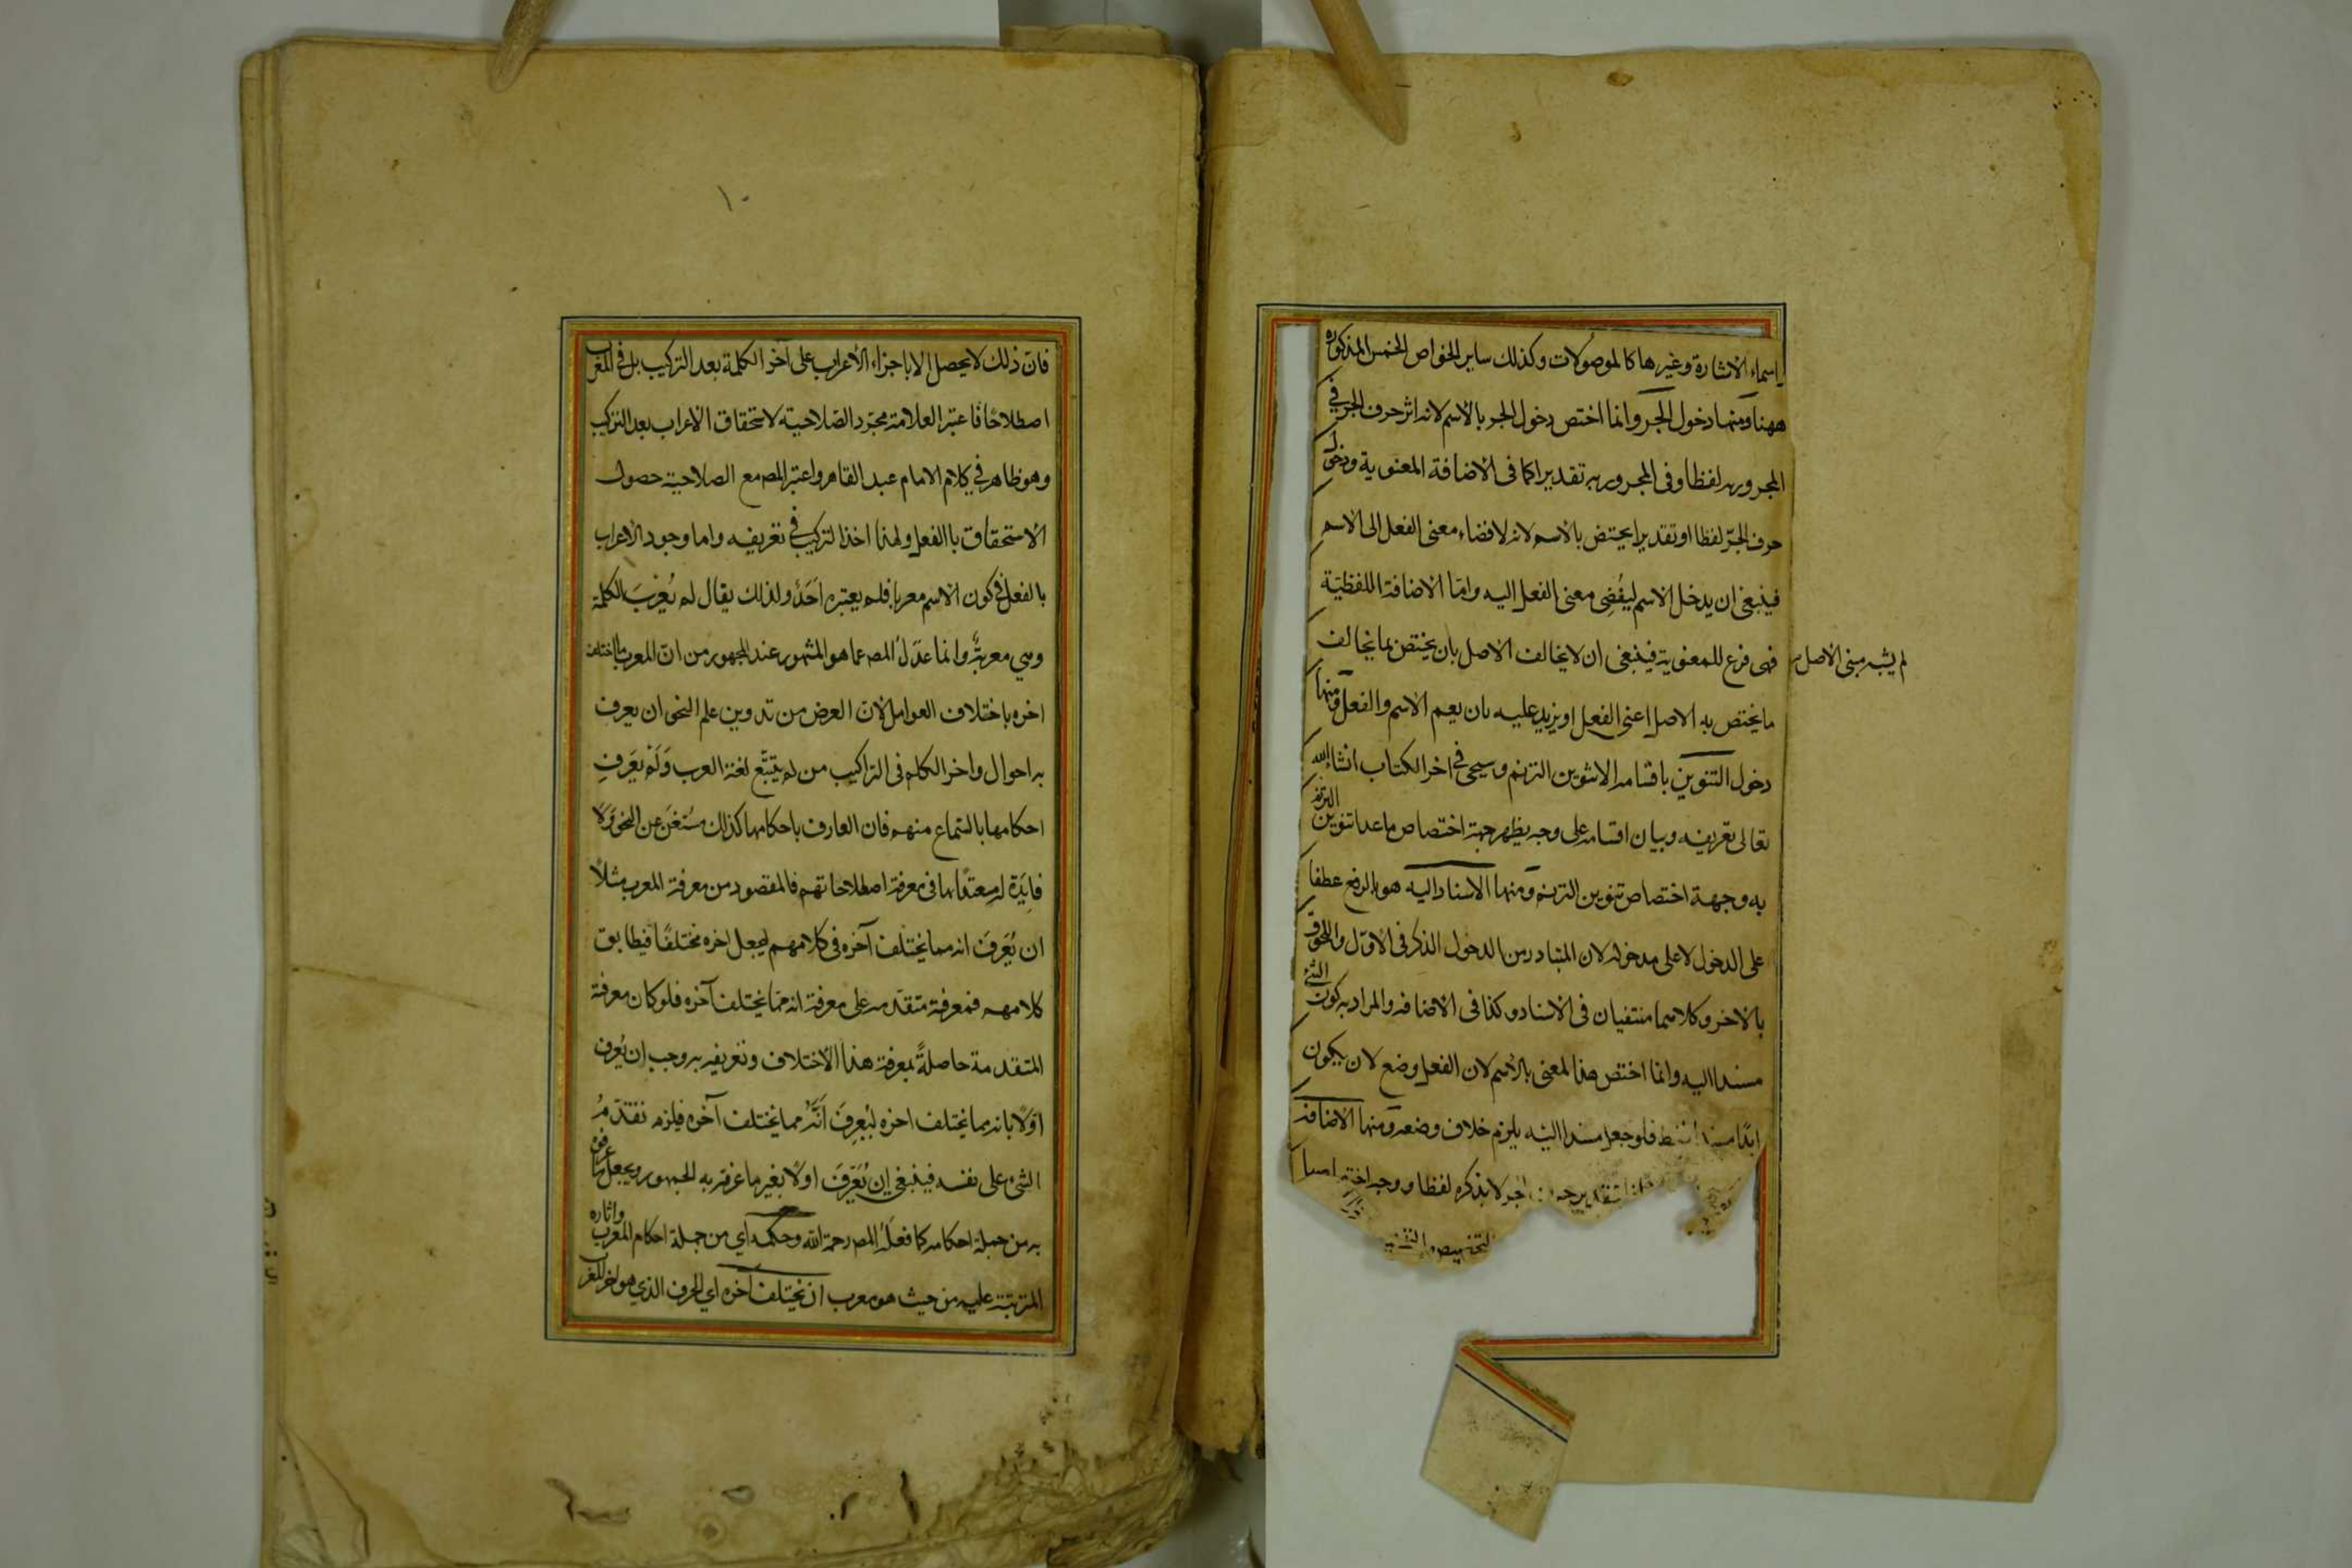 اسماء الاشارة وغيرها كالموصولات وكذلك ساير الخواص الخمس المذكورة
ههنا ومنها دخول الجر وانما اختص دخول الجر بالاسم لانه اثر حرف الجر في
المجرور به لفظا وفى المجرور به تقديرا كما فى الاضافة المعنوية ودخول
حرف الجر لفظا او تقديرا يختص بالاسم لانه لافضاء معنى الفعل الى الاسم
فينبغى ان يدخل الاسم ليُفضِى معنى الفعل اليه واما الاضافة اللفظية
فهى فرع للمعنوية فينبغى ان لا يخالف الاصل بان يختص بما يخالف
لم يشبه مبنى الاصل
ما يختص به الاصل اعنى الفعل او يزيد عليه بان يعم الاسم والفعل ومنها
دخول التنوين باقسامه الا تنوين الترنم وسيجى فى اخر الكتاب انشاء الله
تعالى تعريفه وبيان اقسامه على وجه يظهر جهة اختصاص ما عدا تنوين الترنم
به وجهة اختصاص تنوين الترنم ومنها الاسناد اليه هو بالرفع عطفا
على الدخول لا على مدخوله لان المتبادر من الدخول الذكر فى الاول واللحوق
بالاخر وكلاهما منتفيان فى الاسناد وكذا فى الاضافه والمراد به كون الشئ
مسندا اليه وانما اختص هذا المعنى بالاسم لان الفعل وضع لان يكون
ابدا مسندا فقط فلو جعل مسندا اليه يلزم خلاف وضعه ومنها الاضافة
بتقدير حرف الجر لا بذكره لفظا ووجه اختصاصها
التخصيص والتخفيف
١٠
فان ذلك لا يحصل الا باجزاء الاعراب على آخر الكلمة بعد التركيب بل فى المعرب
اصطلاحًا فاعتبر العلامة مجرد الصلاحية لاستحقاق الاعراب بعد التركيب
وهو ظاهر فى كلام الامام عبد القاهر واعتبر المصـ مع الصلاحية حصول
الاستحقاق بالفعل ولهذا اخذ التركيب فى تعريفه واما وجود الاعراب
بالفعل فى كون الاسم معربا فلم يعتبره اَحَدٌ ولذلك يقال لم يُعْرَبَ الكلمة
وهى معربةٌ وانما عدَلَ المصـ عما هو المشهور عند الجمهور من ان المعرب ما اختلف
اخره باختلاف العوامل لان الغرض من تدوين علم النحو ان يعرف
به احوال واخر الكلم فى التراكيب من لم يتتبّع لغة العرب وَلَمْ يَعْرِفِ
احكامها بالسماع منهم فان العارف باحكامها كذلك مستغن عن النحو وَلا
فايدة له معتدًا بها فى معرفة اصطلاحاتهم فالمقصود من معرفة المعرب مثلاً
ان يُعْرَفَ انه مما يختلف آخره فى كلامهم ليجعل اخره مختلفًا فيطابق
كلامهم فمعرفته متقدمه على معرفة انه مما يختلف آخره فلو كان معرفة
المتقدمة حاصلةً بمعرفة هذا الاختلاف وتعريفه به وجب ان يُعرف
اوّلًا بانه مما يختلف اخره ليُعرفَ اَنَّهُ مما يختلف آخره فيلزم تقدّمُ
الشئ على نفسه فينبغى ان يُعَرَّفَ اولًا بغير ما عرفه به الجمهور ويجعل ما عرفوه
به من جملة احكامه كما فعلَهُ المصـ رحمة الله وحكمه اي من جملة احكام المعرب واثاره
المترتبة عليه من حيث هو معرب ان يختلف آخره اي الحرف الذي هو اخر المعرب